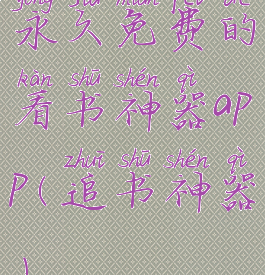 yǒng jiǔ miǎn fèi de
永久免费的
kàn shū shén qì
看书神器ap
zhuī shū shén qì
p(追书神器
)